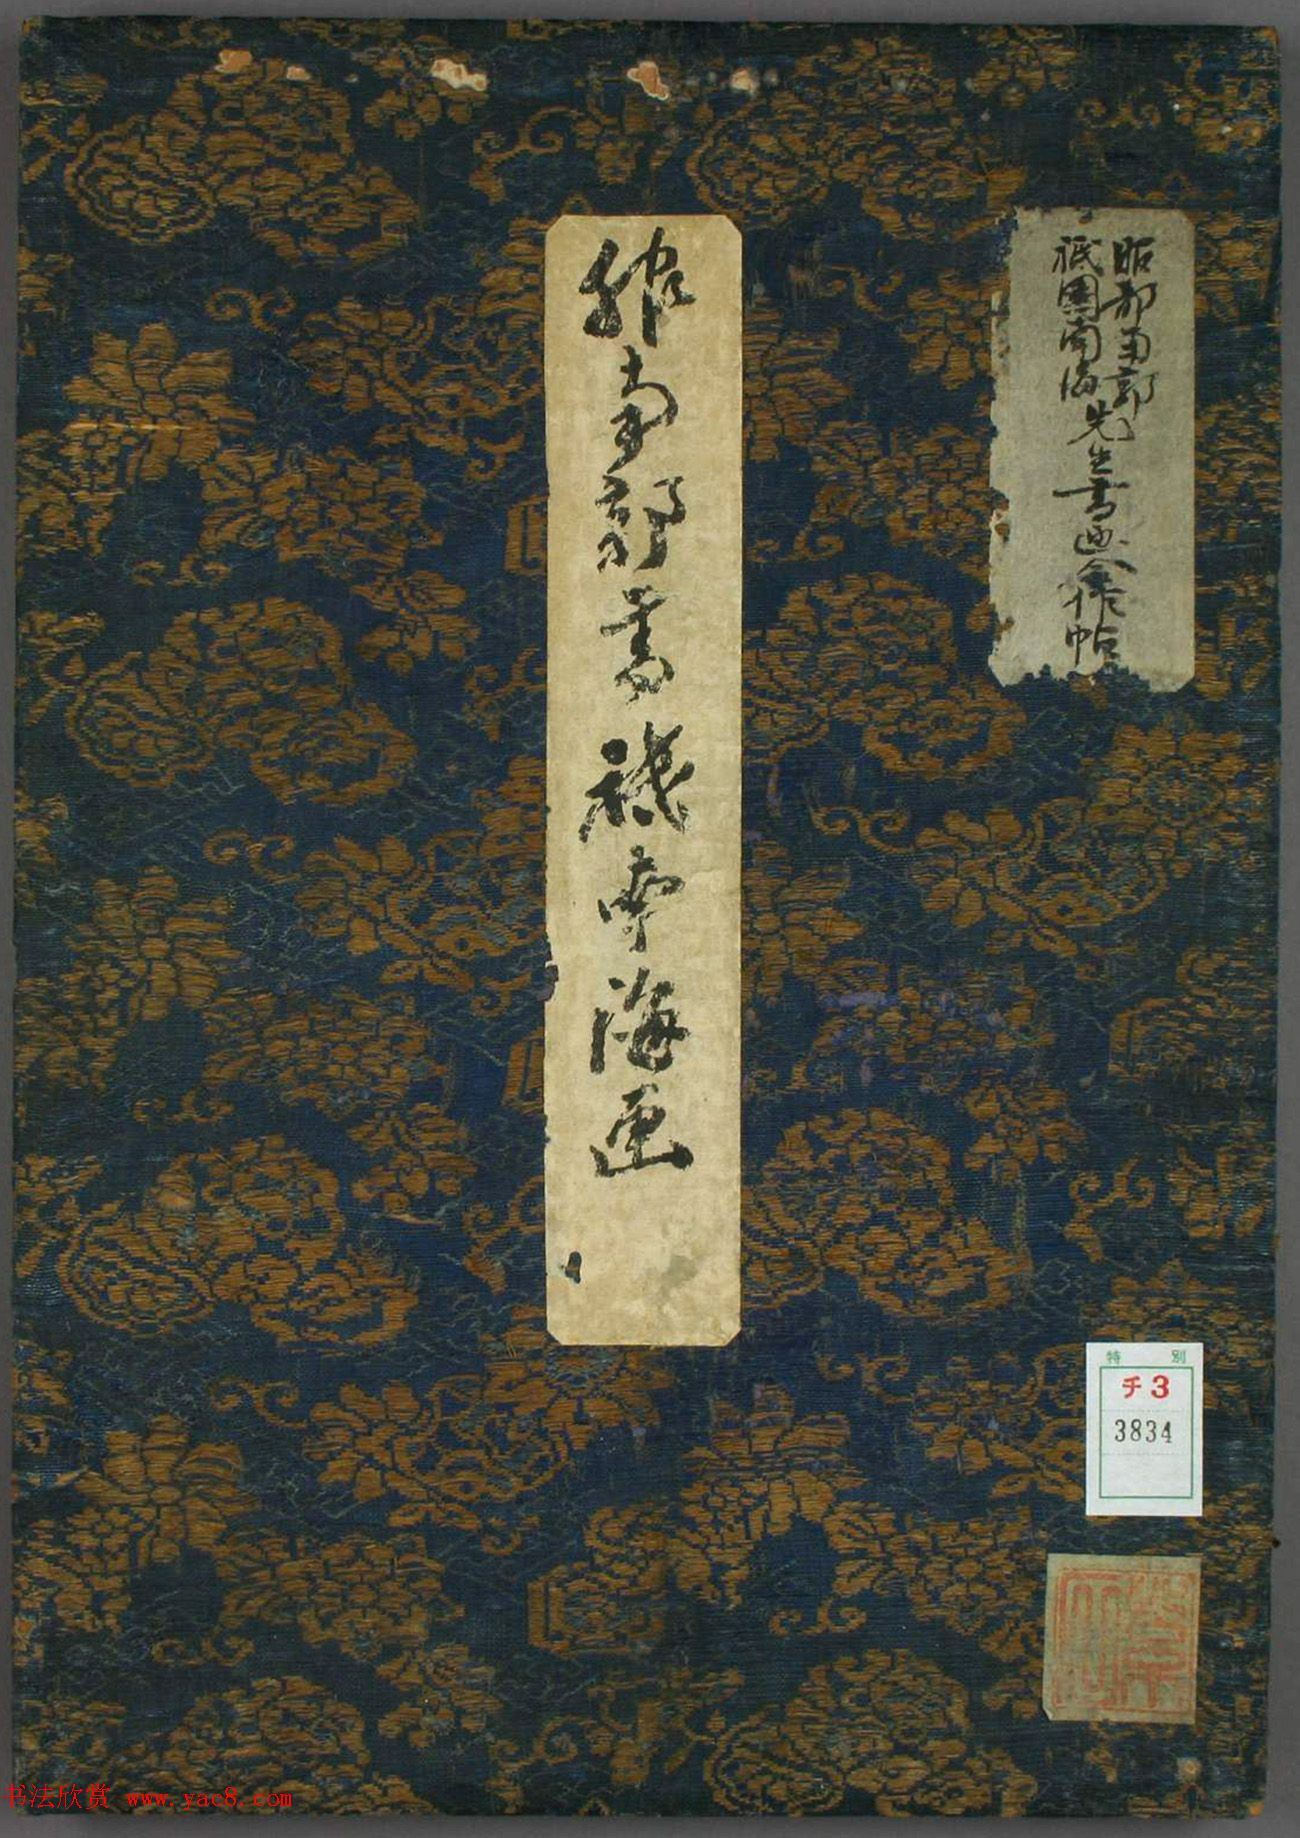 服南郭書祇南海画
服部南郭
祇園南海
先生書画合作帖
特別
チ3
3834
书法欣赏 www.yac8.com